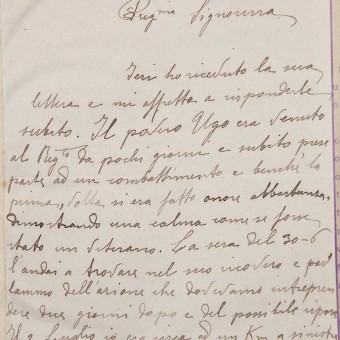 Preg.ma Signorina
Ieri ho ricevuto la sua
lettera e mi affretto a risponderle
subito. Il povero Ugo era venuto
al Regg.to da pochi giorni e subito prese
parte ad un combattimento e benchè la
prima volta si era fatto onore abbastanza
dimostrando una calma come se fosse
stato un veterano. La sera del 30-6
l'andai a trovare nel suo ricovero e par
lammo dell'azione che dovevamo intrapren
dere due giorni dopo e del possibile riposo
Il 2 Luglio io ero circa ad un Km a sinistra